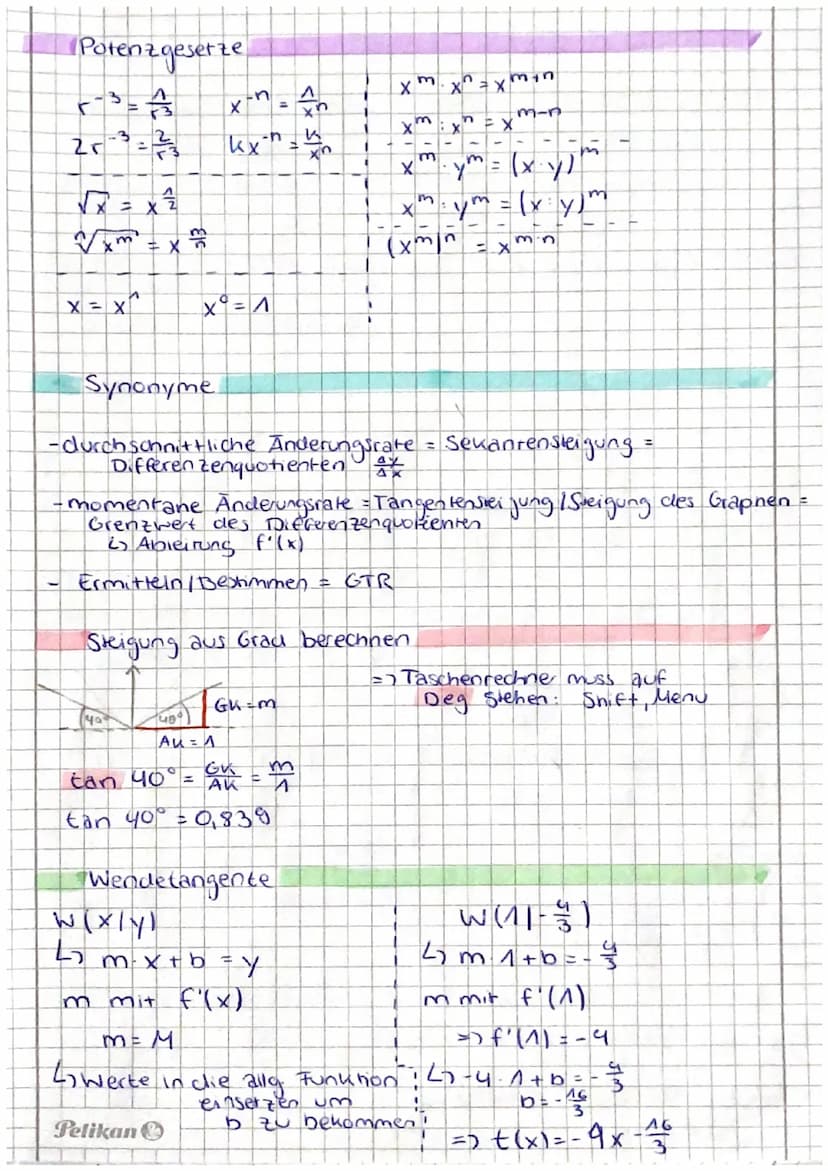 Potenzgesetze
r⁻³ = 1/r³   x⁻ⁿ = 1/xⁿ
2r⁻³ = 2/r³   kx⁻ⁿ = k/xⁿ
√x = x^(1/2)
ⁿ√xᵐ = x^(m/n)
x = x¹   x⁰ = 1
xᵐ · xⁿ = x^(m+n)
xᵐ : xⁿ = x^(m-n)
xᵐ · yᵐ = (x·y)ᵐ
xᵐ : yᵐ = (x:y)ᵐ
(xᵐ)ⁿ = x^(m·n)
Synonyme
- durchschnittliche Änderungsrate = Sekantensteigung =
Differenzenquotienten Δy/Δx
- momentane Änderungsrate = Tangentensteigung / Steigung des Graphen =
Grenzwert des Differenzenquotienten
↳ Ableitung f'(x)
- Ermitteln / Bestimmen = GTR
Steigung aus Grad berechnen
=> Taschenrechner muss auf
Deg stehen: Shift, Menu
40°   40°   GK = m
AK = 1
tan 40° = GK/AK = m/1
tan 40° = 0,839
Wendetangente
W(x|y)
↳ m·x + b = y
m mit f'(x)
m = M
↳ Werte in die allg. Funktion
einsetzen um
b zu bekommen
W(1|-4/3)
↳ m·1 + b = -4/3
m mit f'(1)
=> f'(1) = -4
↳ -4·1 + b = -4/3
b = -16/3
=> t(x) = -4x - 16/3
Pelikan